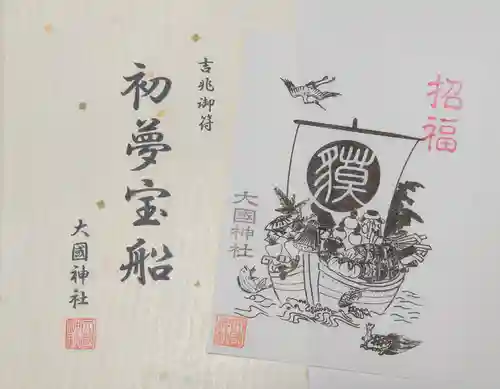 吉兆御符
初夢宝船
大國神社
招福
獏
大國神社